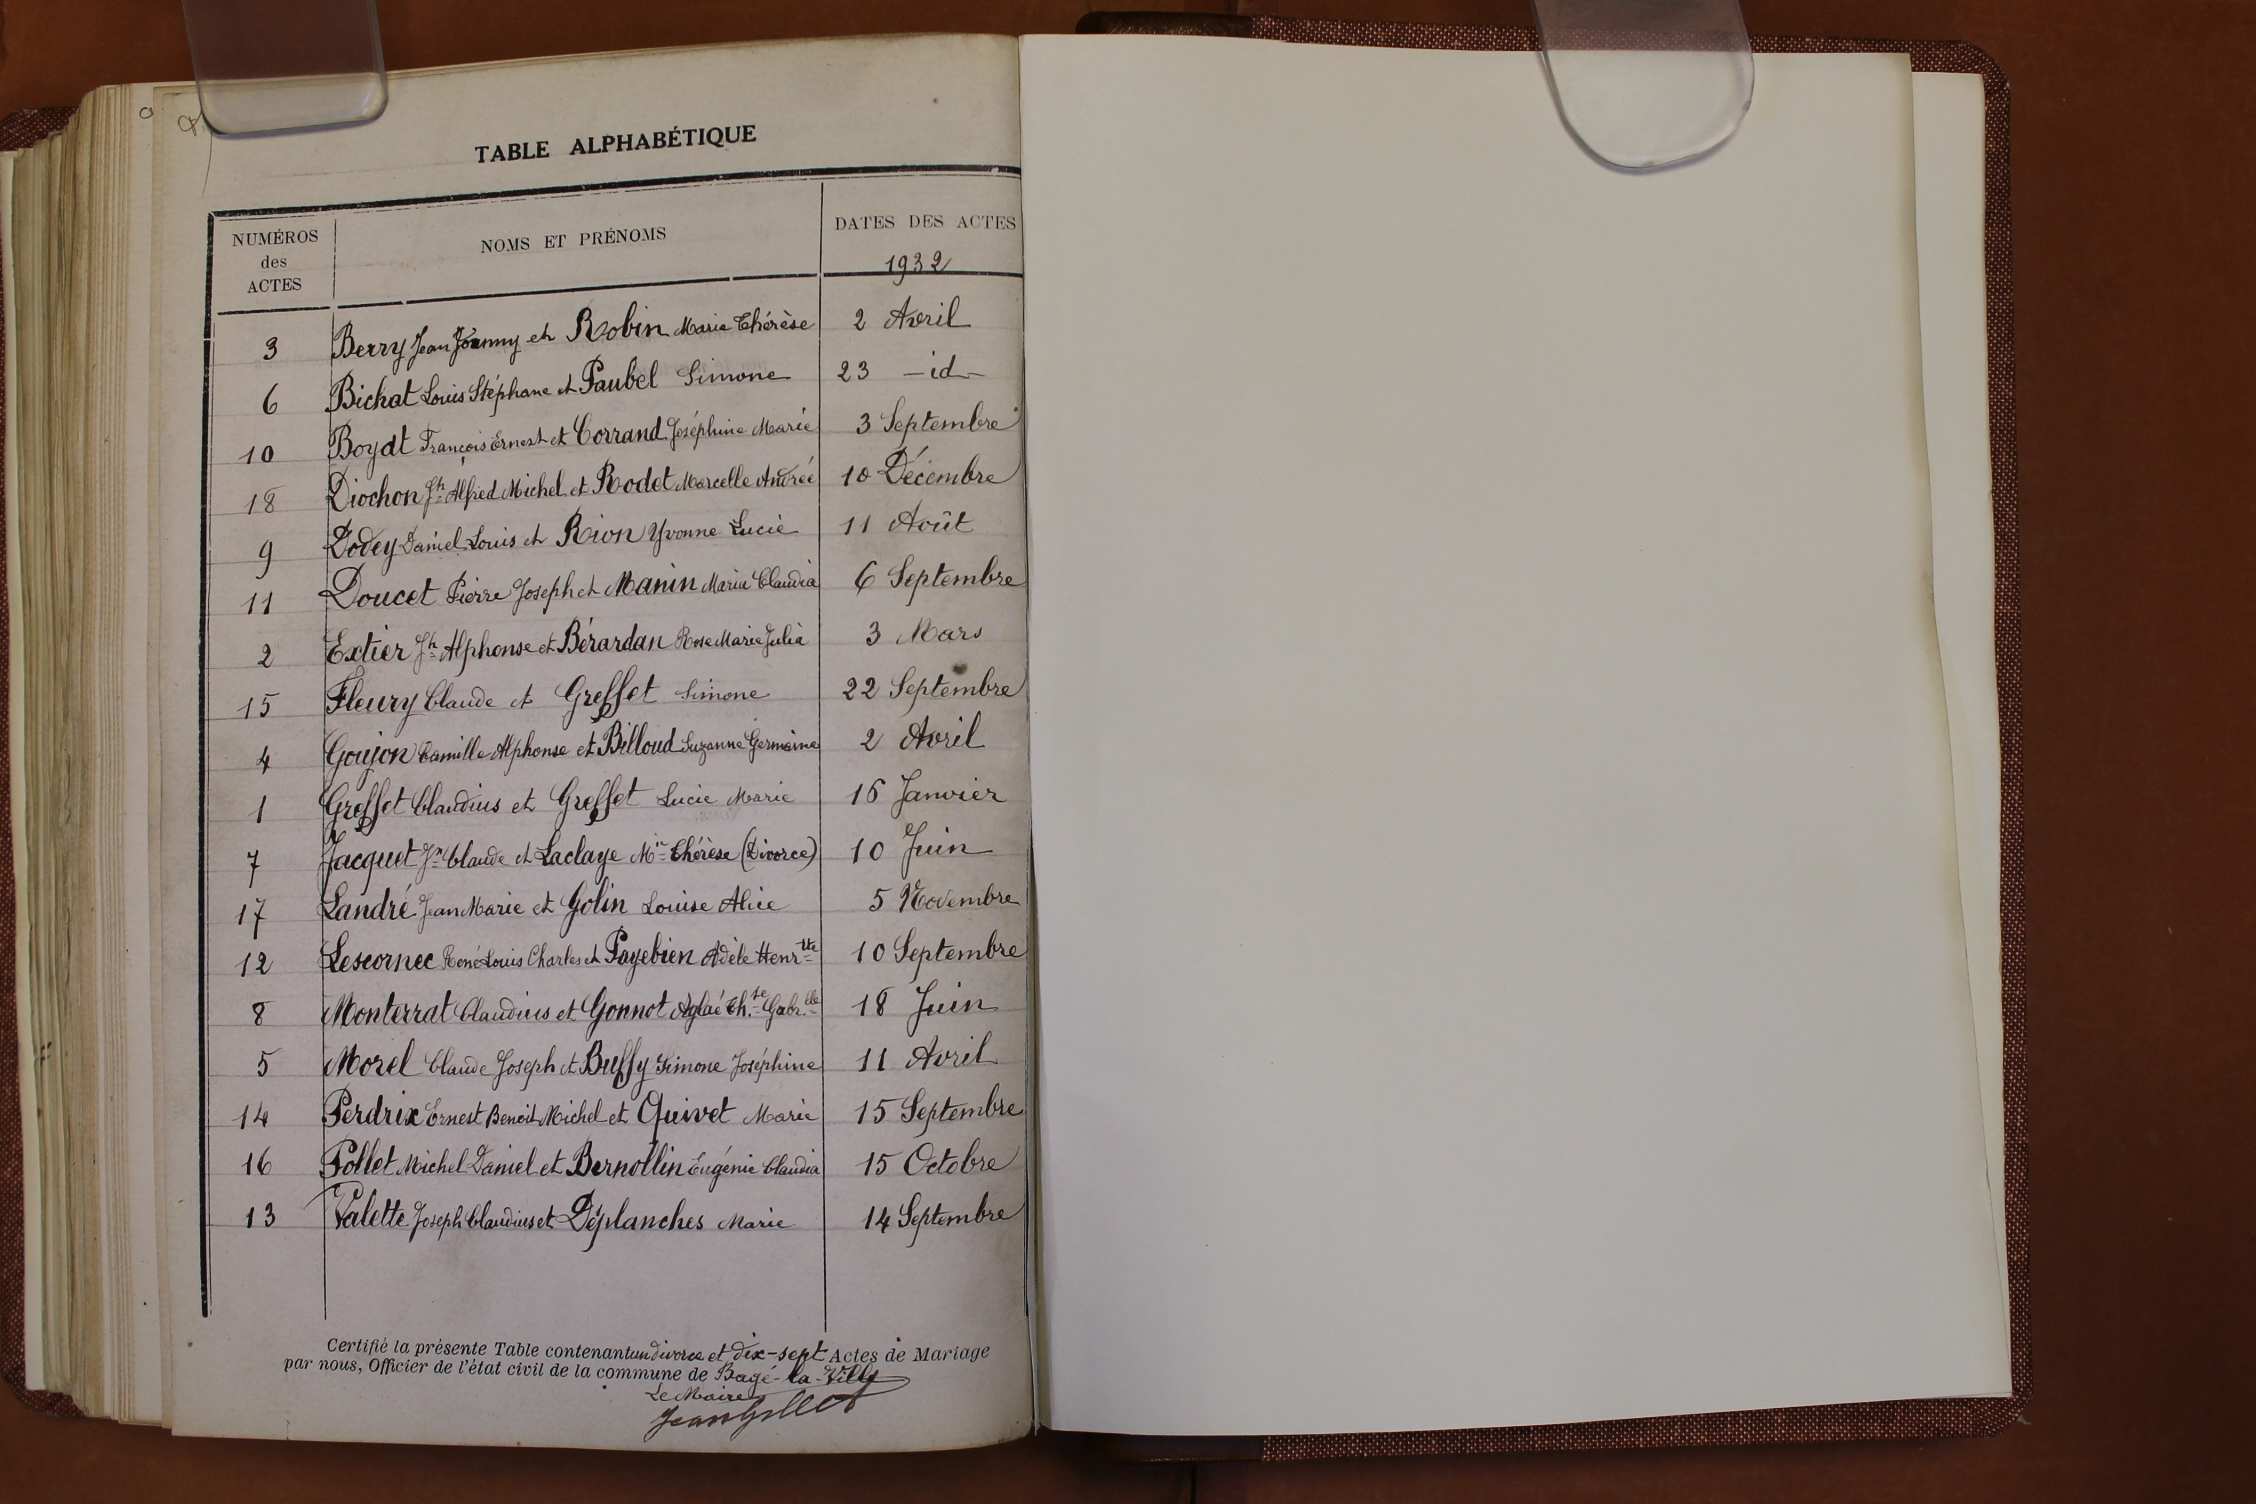 TABLE ALPHABÉTIQUE
NUMÉROS des ACTES
NOMS ET PRÉNOMS
DATES DES ACTES
1932
3 Berry Jean Joanny et Robin Marie Thérèse 2 Avril
6 Bichat Louis Stéphane et Paubel Simone 23 -id-
10 Boydt François Ernest et Corrand Joséphine Marie 3 Septembre
18 Diochon Jh Alfred Michel et Rodet Marcelle Andrée 10 Décembre
9 Dodey Daniel Louis et Rion Yvonne Lucie 11 Août
11 Doucet Pierre Joseph et Manin Maria Claudia 6 Septembre
2 Extier Jh Alphonse et Bérardan Rose Marie Julia 3 Mars
15 Fleury Claude et Greffet Simone 22 Septembre
4 Goujon Camille Alphonse et Billoud Suzanne Germaine 2 Avril
1 Greffet Claudius et Greffet Lucie Marie 16 Janvier
7 Jacquet Jn Claude et Laclaye Mie Thérèse (Divorce) 10 Juin
17 Landré Jean Marie et Golin Louise Alice 5 Novembre
12 Lescornec René Louis Charles et Payebien Adèle Henrtte 10 Septembre
8 Monterrat Claudius et Gonnot Aglaé Th.se Gabr.elle 18 Juin
5 Morel Claude Joseph et Buffy Simone Joséphine 11 Avril
14 Perdrix Ernest Benoit Michel et Quivet Marie 15 Septembre
16 Pollet Michel Daniel et Bernollin Eugénie Claudia 15 Octobre
13 Valette Joseph Claudius et Déplanches Marie 14 Septembre
Certifié la présente Table contenant un divorce et dix-sept Actes de Mariage
par nous, Officier de l'état civil de la commune de Bagé-la-Ville
Le Maire